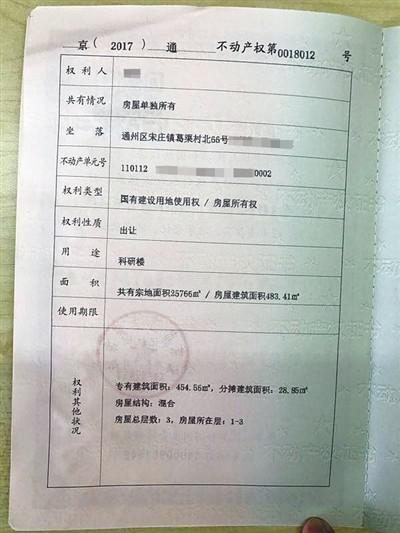 京（2017）通 不动产权第0018012 号
权利人
共有情况 房屋单独所有
坐落 通州区宋庄镇葛渠村北56号
不动产单元号 110112 0002
权利类型 国有建设用地使用权 / 房屋所有权
权利性质 出让
用途 科研楼
面积 共有宗地面积35766㎡ / 房屋建筑面积483.41㎡
使用期限
权利其他状况
专有建筑面积：454.56㎡，分摊建筑面积：28.85㎡
房屋结构：混合
房屋总层数：3，房屋所在层：1-3